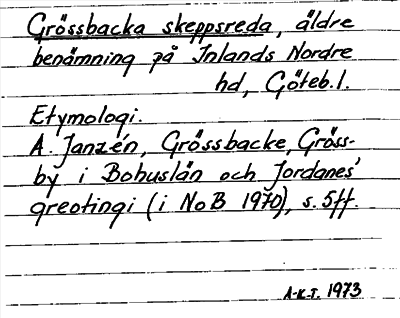 Grössbacka skeppsreda, äldre
benämning på Inlands Nordre
hd, Göteb.l.
Etymologi.
A. Janzén, Grössbacke, Gröss-
by i Bohuslän och Jordanes'
greotingi (i NoB 1970), s. 5ff.
A-K.T. 1973